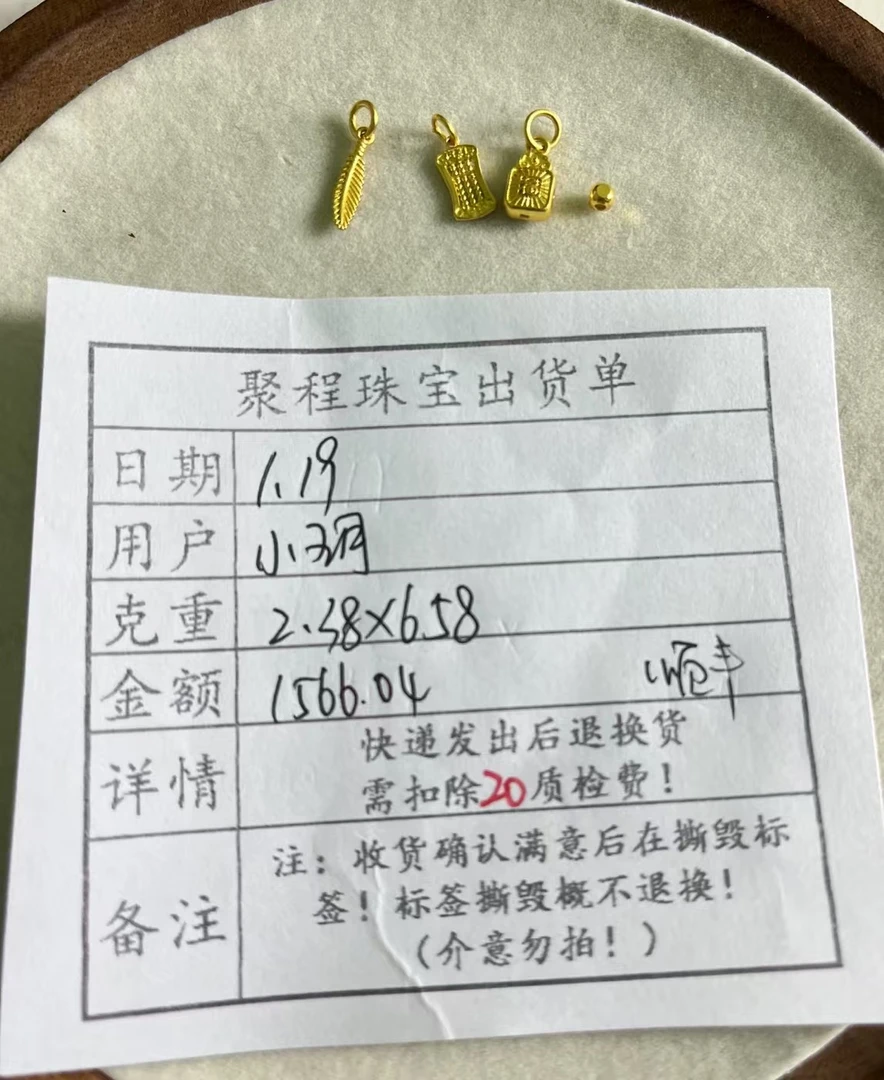 聚程珠宝出货单
日期 1.19
用户 小玥
克重 2.38×658
金额 1566.04 顺丰
详情 快递发出后退换货
需扣除20质检费！
备注 注：收货确认满意后在撕毁标
签！标签撕毁概不退换！
（介意勿拍！）